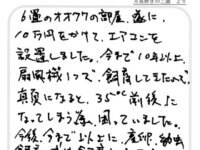 方飛野きのこ園 より
6畳のオオクワの部屋、遂に
10万円をかけて、エアコンを
設置しました。今まで10年以上、
扇風機1つで、飼育してきたので、
真夏になると、35℃前後に
なってしまう為、困っていました。
今後、今まで以上に、産卵、幼虫